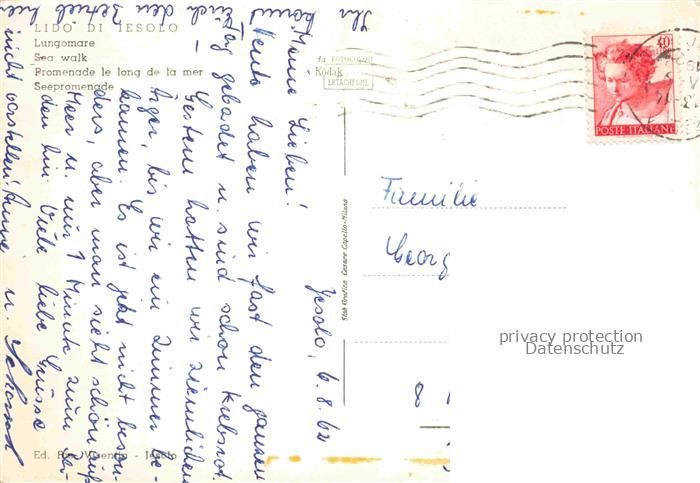 LIDO DI IESOLO
Lungomare
Sea walk
Promenade le long de la mer
Seepromenade
da FOTOCOLOR
Kodak
EKTACHROME
40
POSTE ITALIANE
Jesolo, 6.8.62
Meine Lieben!
Heute haben wir fast den ganzen
Tag gebadet u. sind schon krebsrot.
Gestern hatten wir ziemlichen
Ärger, bis wir ein Zimmer be-
kamen. Es ist jetzt nicht beson-
ders, aber man sieht schön aufs
Meer u. nur 1 Minute zum
den hin. Viele liebe Grüsse
u.
Ihr könnt euch den Betrieb hier
nicht vorstellen!
Familie
Georg
8
Stab Grafico Cesare Capello-Milano
privacy protection
Datenschutz
Ed. Jesolo